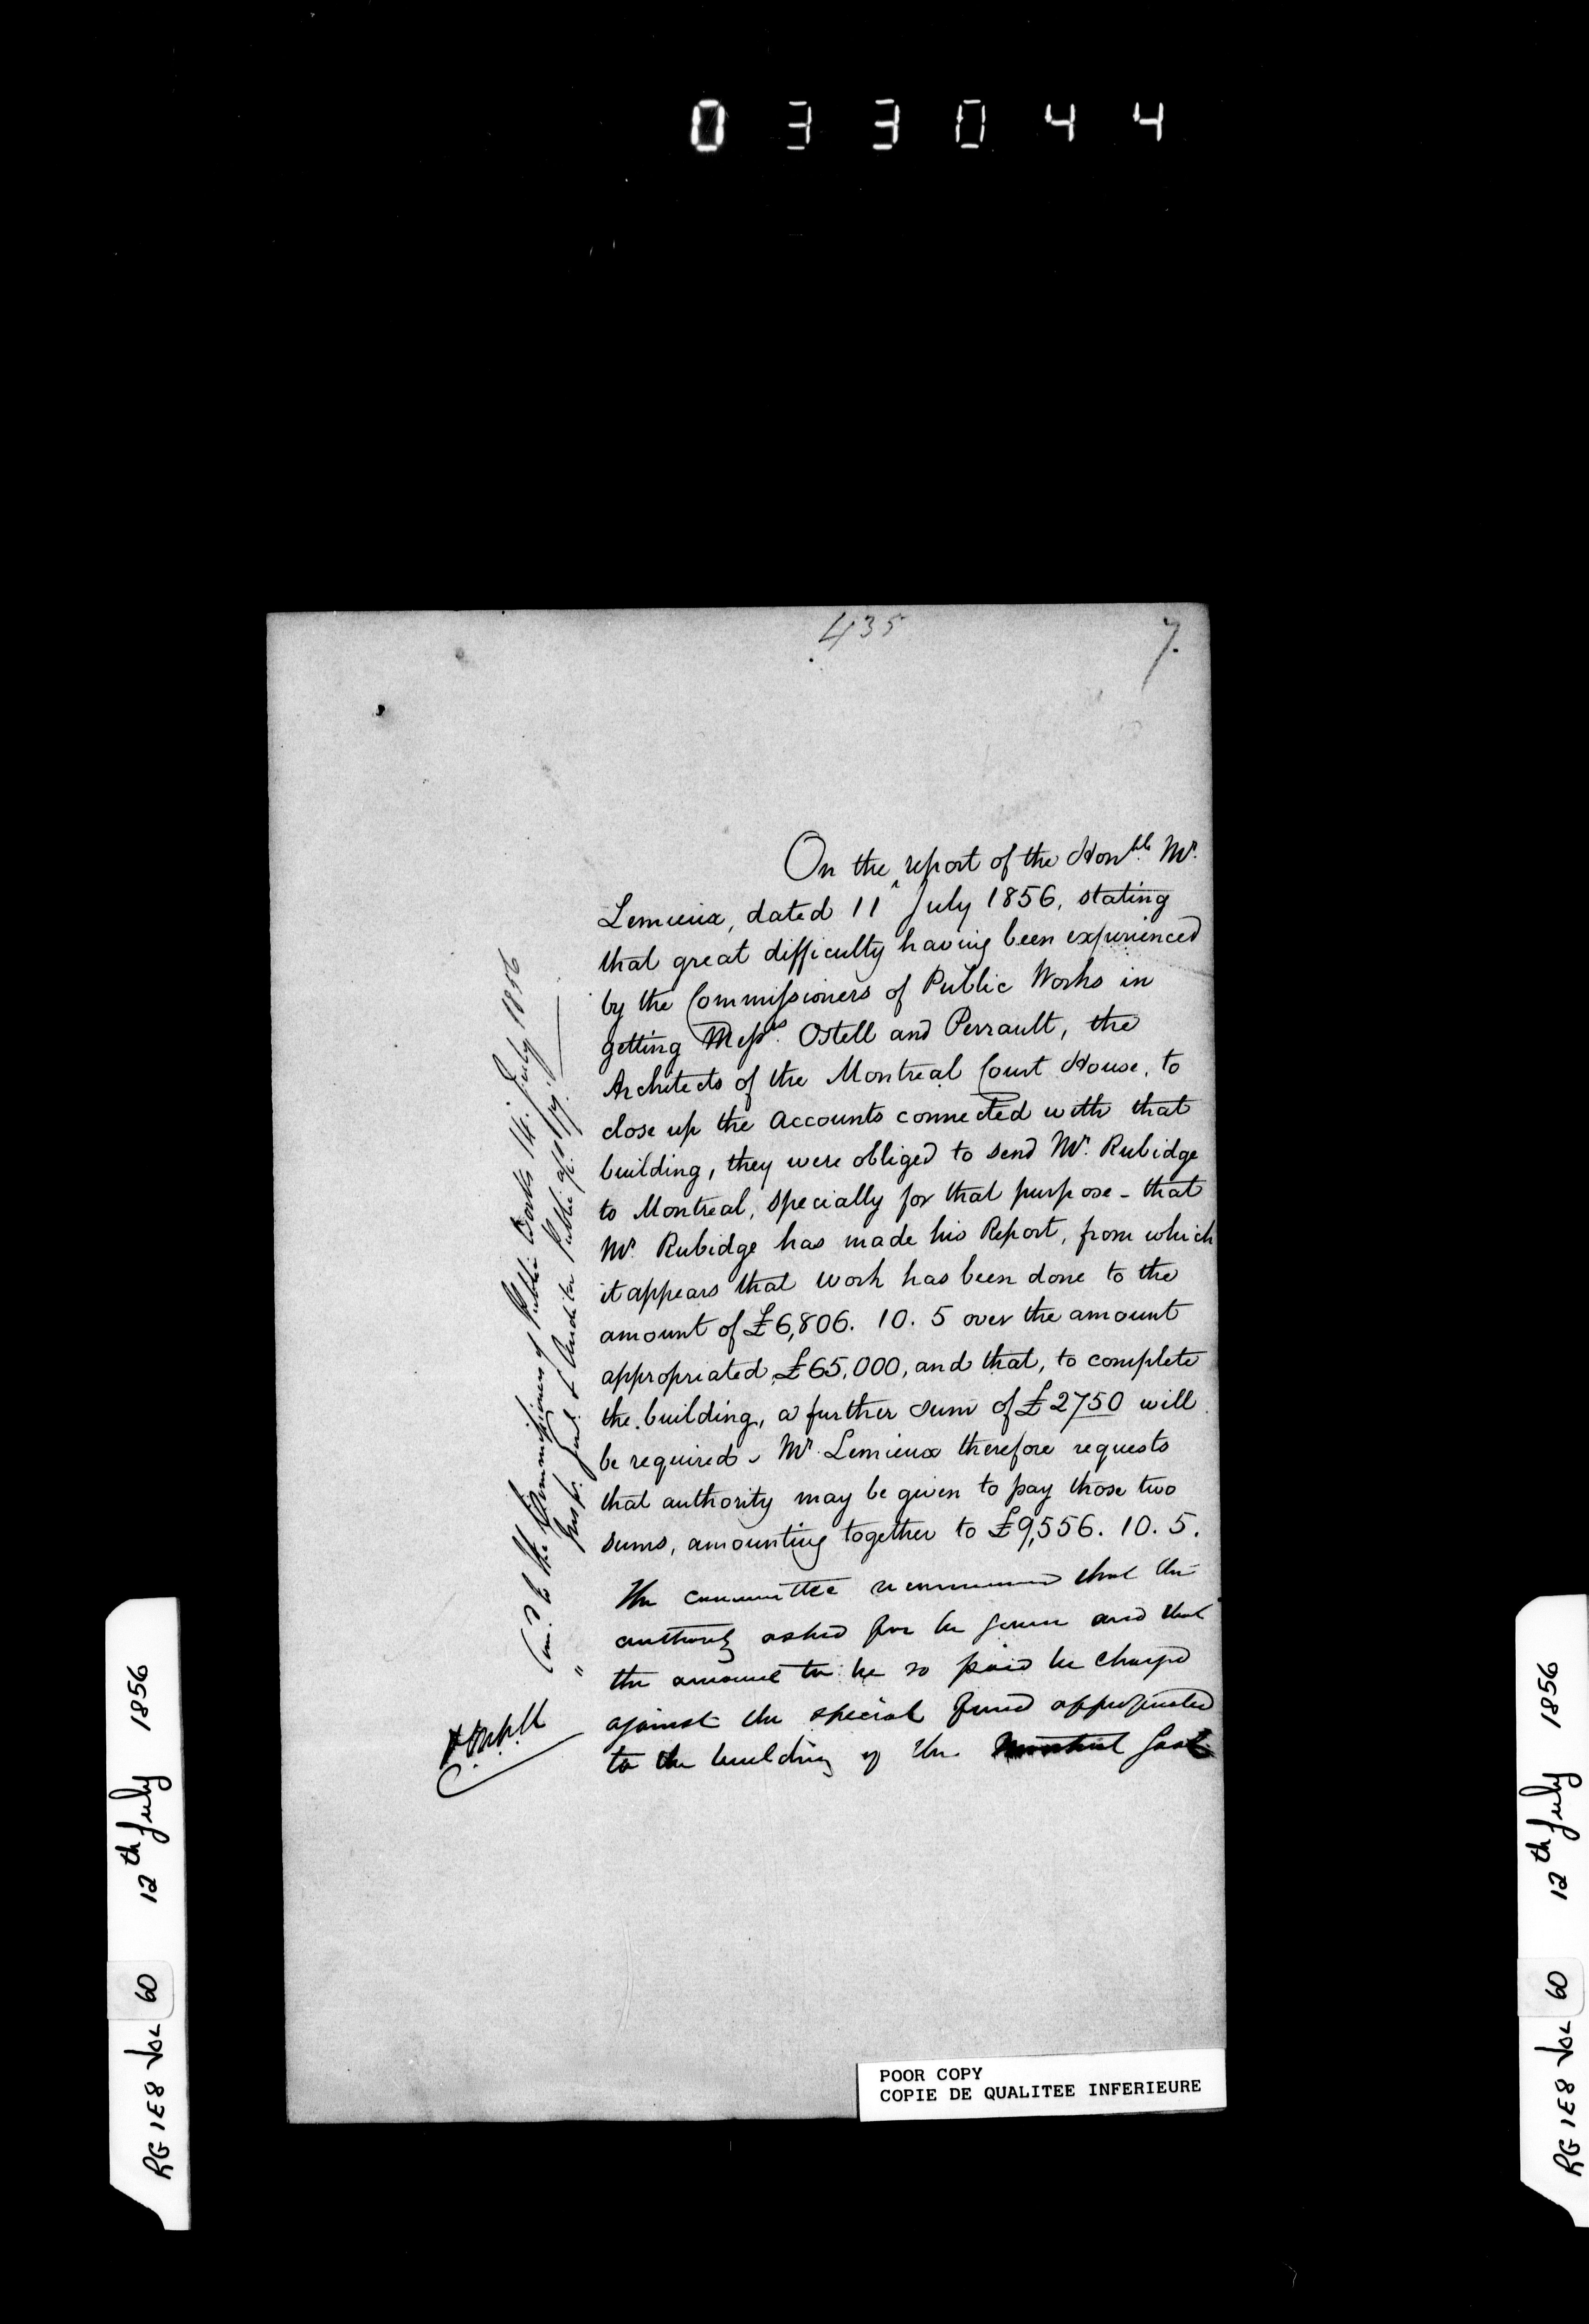 033044
435
7.
On the report of the Honble. Mr.
Lemieux, dated 11 July 1856, stating
that great difficulty having been experienced
by the Commissioners of Public Works in
getting Messrs. Ostell and Perrault, the
Architects of the Montreal Court House, to
close up the Accounts connected with that
building, they were obliged to send Mr. Rubidge
to Montreal, specially for that purpose - that
Mr. Rubidge has made his Report, from which
it appears that work has been done to the
amount of £6,806. 10. 5 over the amount
appropriated, £65,000, and that, to complete
the building, a further sum of £2750 will
be required - Mr. Lemieux therefore requests
that authority may be given to pay those two
sums, amounting together to £9,556. 10. 5.
The committee recommend that the
authority asked for be given and that
the amount to be so paid be charged
against the special fund appropriated
to the building of the Montreal Gaol
to the Commissioners of Public Works 14. July 1856
" Insptr. Genl. & Auditor Public
RG 1E8 Vol 60 12th July 1856
RG 1E8 Vol 60 12th July 1856
POOR COPY
COPIE DE QUALITEE INFERIEURE